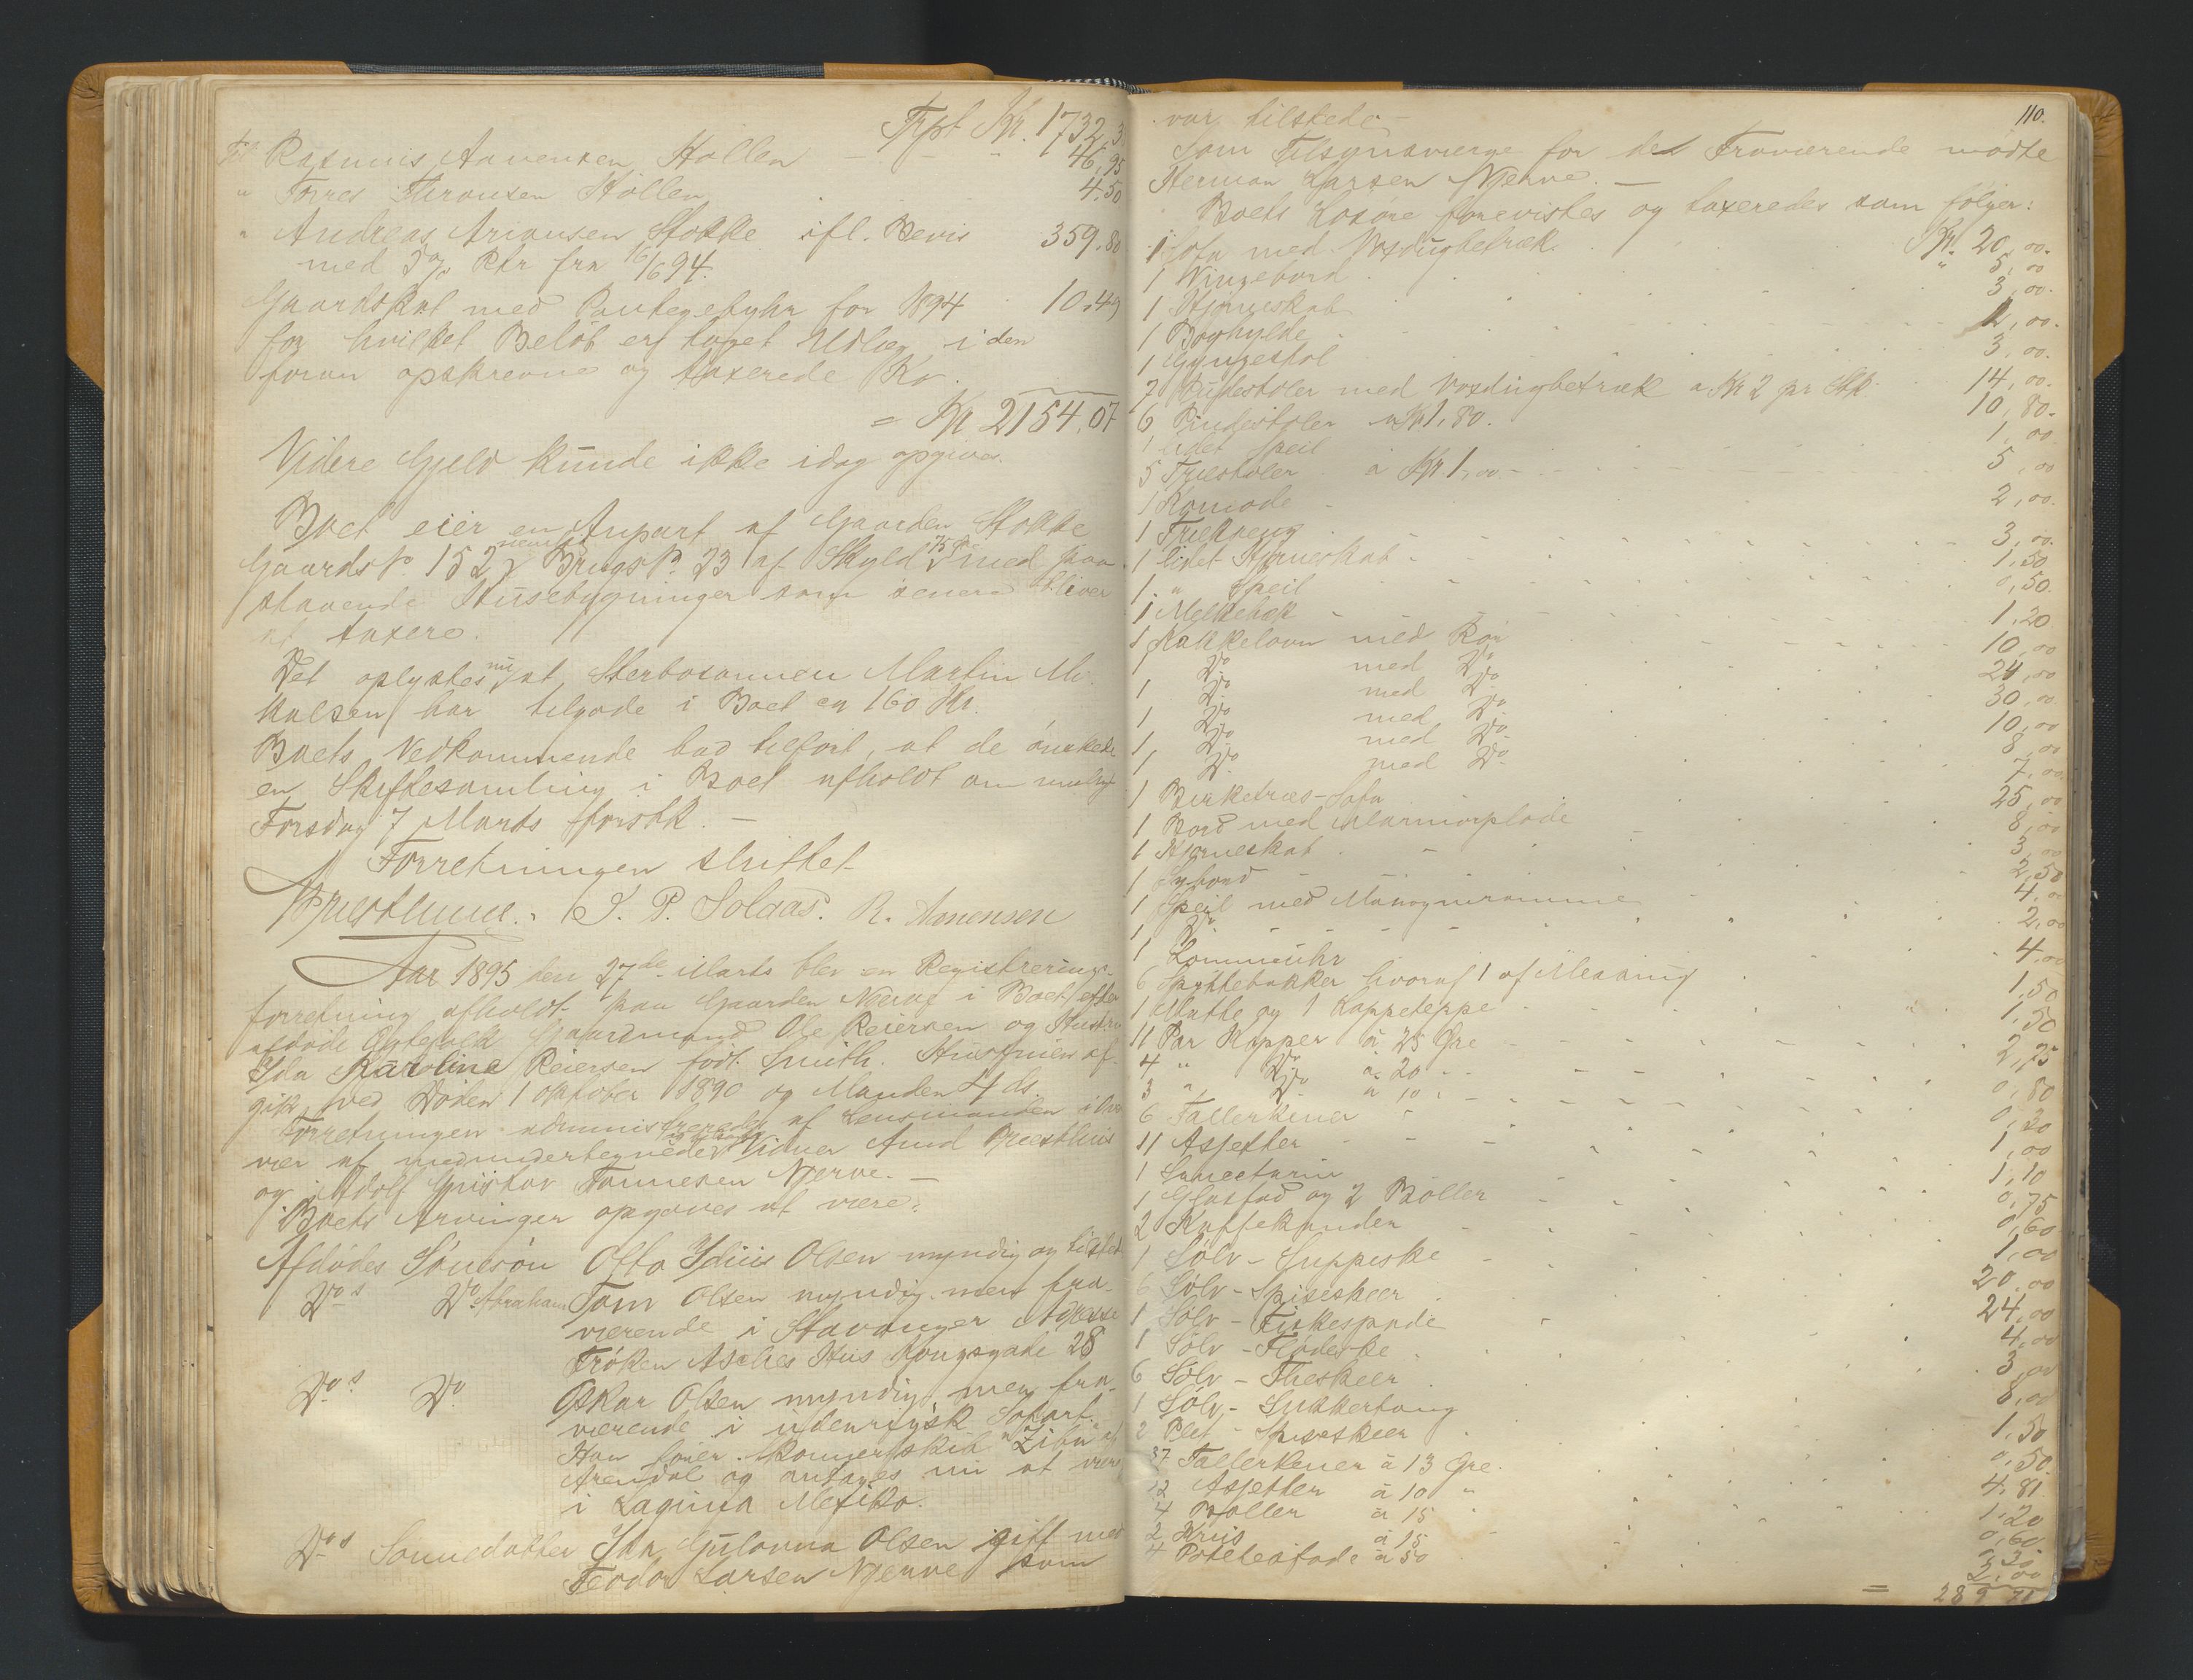 Trpt Kr. 1732,3
Til Rasmus Aanensen Stollen - - - 46,95
" Torres Aronsen Stollen 4,50
" Andreas Arionsen Stokke ifl. Bevis 359,80
med 5% Rtr fra 16/6 94.
Gaardskat med Pantegebyhr for 1894 10,49
for hvilket Beløb er taget Udlæg i den
foran opskrevne og taxerede Ko.
= Kr 2154,07
Videre Gjeld kunde ikke idag opgives.
Boet eier en Anpart af Gaarden Stokke
Gaards No. 152 Brugs No. 23 af Skyld med paa
staaende Husebygninger som senere bliver
at taxere.
Det oplystes nu at Sterbosønnen Martin Mi-
kalsen har tilgode i Boet en 160 Kr.
Boets Vedkommende bad tilført, at de ønskede
en Skiftesamling i Boet afholdt om muligt
Torsdag 7 Marts førstk. -
Forretningen sluttet
Bruestluus. S. P. Solaas. R. Aanensen
Aar 1895 den 27de Marts blev en Registrerings-
forretning afholdt paa Gaarden Njerve i Boet efter
afdøde Ægtefolk Gaardmand Ole Reiersen og Hustru
Ida Karoline Reiersen født Smith. Hustruen af-
gik ved Døden 1 Oktober 1890 og Manden 4 ds.
Forretningen administreredes af Lensmanden i Over
vær af medundertegnede Vidner Amd Bruestluus
og Adolf Gustav Tønnesen Njerve. -
Boets Arvinger opgaves at være:
Afdødes Sønesøn Otto Idius Olsen myndig og tilsted
Do s Do Abraham Tom Olsen myndig men fra-
værende i Stavanger Adresse
Frøken Asches Hus Kongsgade 28
Do s Do Oskar Olsen myndig, men fra-
værende i udenrigsk Søfart.
Han farer Skonnertskib "Ziba" af
Arendal og antages nu at være
i Laguna Mexiko.
Do s Sønnedatter Ida Gulovna Olsen gift med
Teodor Larsen Njerve som
110.
var tilstede -
Som Tilsynsværge for den Fraværende mødte
Herman Larsen Njerve. -
Boets Løsøre forevistes og taxeredes som følger:
1 Sofa med Voxdugbetræk Kr. 20,00.
1 Vingebord " 5,00
1 Hjørneskab 3,00.
1 Boghylde 1,00.
1 Gyngestol 3,00.
7 Pudestoler med Voxdugbetræk a Kr 2 pr Stk 14,00.
6 Pindestoler a Kr 1,80. 10,80.
1 lidet Speil 1,00
5 Træstoler à Kr 1,00 - 5,00
1 Komode 2,00.
1 Træseng 3,00.
1 lidet Hjørneskab 1,50
1 " Speil 0,50.
1 Melkebak 1,20
1 Kakkelovn med Rør 10,00
1 Do med Do 24,00
1 Do med Do 30,00
1 Do med Do 10,00
1 Do med Do 8,00
1 Do med Do 7,00
1 Birketræs-Sofa 25,00
1 Bord med Marmorplade 8,00
1 Hjørneskab 3,00
1 Sybord 2,50
1 Speil med Mahogniramme 4,00
1 Do 2,00
1 Lommeuhr 4,00
6 Spyttebakker hvoraf 1 af Messing 1,50
1 Matte og 1 Kappeteppe 1,50
11 Par Kopper à 25 Øre 2,75
4 " Do à 20 " 0,80
3 " Do à 10 " 0,30
6 Tallerkener 1,00
11 Asjetter 1,10
1 0,75
1 Glasfad og 2 Boller 0,60
2 Kaffekander 1,00
1 Sølv-Suppeske 20,00
6 Sølv-Spiseskeer 24,00
1 Sølv-Fiskespade 4,00
1 Sølv-Flødeske 3,00
6 Sølv-Theskeer 8,00
1 Sølv-Sukkertang 1,50
2 Plet-Spiseskeer 0,50
37 Tallerkener à 13 Øre. 4,81
12 Asjetter à 10 " 1,20
4 Boller à 15 0,60
2 Krus à 15 0,30
4 Potetesfade à 50 2,00
= 289 71